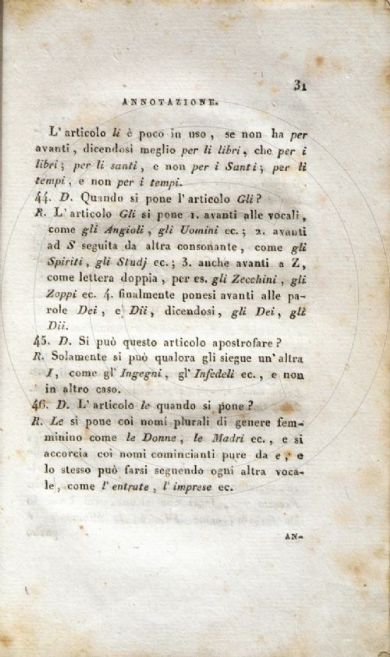 31
ANNOTAZIONE.
L'articolo li è poco in uso, se non ha per
avanti, dicendosi meglio per li libri, che per i
libri; per li santi, e non per i Santi; per li
tempi, e non per i tempi.
44. D. Quando si pone l'articolo Gli?
R. L'articolo Gli si pone 1. avanti alle vocali,
come gli Angioli, gli Uomini ec.; 2. avanti
ad S seguita da altra consonante, come gli
Spiriti, gli Studj ec.; 3. anche avanti a Z,
come lettera doppia, per es. gli Zecchini, gli
Zoppi ec. 4. finalmente ponesi avanti alle pa-
role Dei, e Dii, dicendosi, gli Dei, gli
Dii.
45. D. Si può questo articolo apostrofare?
R. Solamente si può qualora gli siegue un'altra
I, come gl'Ingegni, gl'Infedeli ec., e non
in altro caso.
46. D. L'articolo le quando si pone?
R. Le si pone coi nomi plurali di genere fem-
minino come le Donne, le Madri ec., e si
accorcia coi nomi comincianti pure da e, e
lo stesso può farsi seguendo ogni altra voca-
le, come l'entrate, l'imprese ec.
AN-